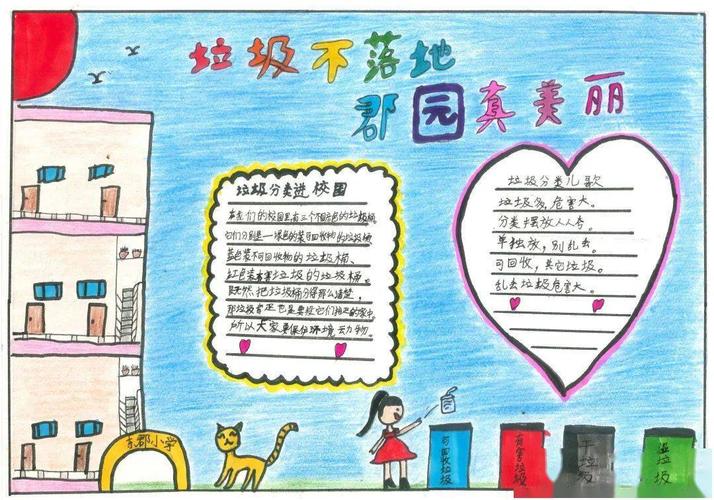 垃圾不落地
郡园真美丽
垃圾分类进校园
在我们的校园里有三个不同颜色的垃圾桶
它们分别是一绿色的装可回收物的垃圾桶
蓝色装不可回收物的垃圾桶、
红色装有害垃圾的垃圾桶。
既然把垃圾桶分得那么清楚,
那垃圾 也是要 它们指定的家中,
所以大家要保护环境动物。
垃圾分类儿歌
垃圾多,危害大。
分类摆放人人夸。
单独放,别乱丢。
可回收,其它垃圾。
乱丢垃圾危害大。
东郡小学
可回收垃圾
有害垃圾
干垃圾
湿垃圾